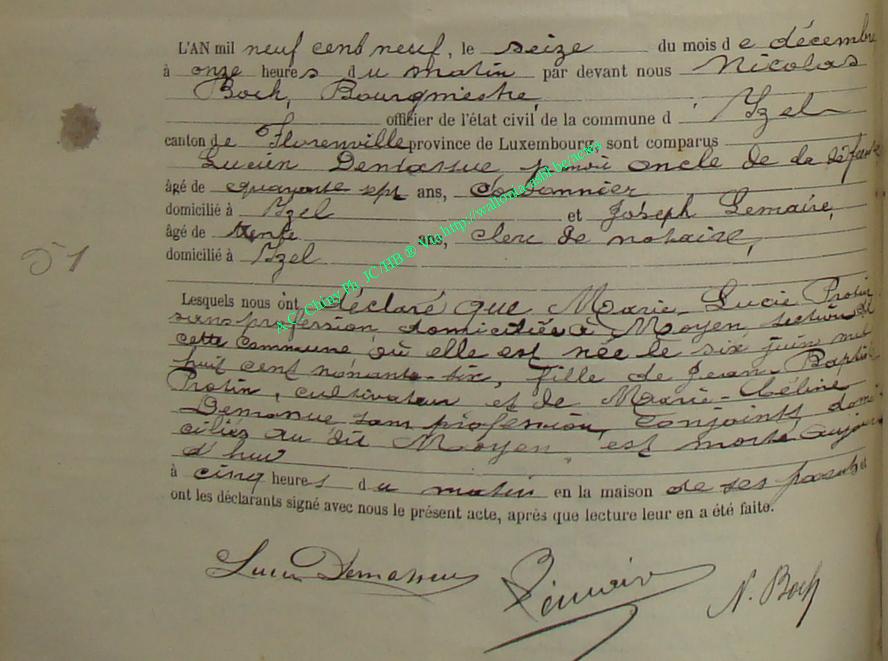 L'AN mil neuf cent neuf, le seize du mois de décembre
à onze heures du matin par devant nous Nicolas
Boch, Bourgmestre,
officier de l'état civil de la commune d' Izel
canton de Florenville province de Luxembourg, sont comparus
Lucien Demassue, oncle de la défunte
âgé de quarante sept ans, Cordonnier
domicilié à Izel et Joseph Lemaire,
âgé de trente ans, clerc de notaire,
domicilié à Izel
51
Lesquels nous ont déclaré que Marie-Lucie Protin
sans profession domiciliée à Moyen, section de
cette commune où elle est née le six juin mil
huit cent nonante-six, fille de Jean-Baptiste
Protin, cultivateur et de Marie-Céline
Demasue sans profession, conjoints, domi-
ciliés au dit Moyen, est morte aujour
d'hui
à cinq heures du matin en la maison de ses parents et
ont les déclarants signé avec nous le présent acte, après que lecture leur en a été faite.
Lucien Demasseu
Lemaire
N. Boch
A.C. Chiny Ph JC/HB ® Via http://wallonia-asbl.be/actes